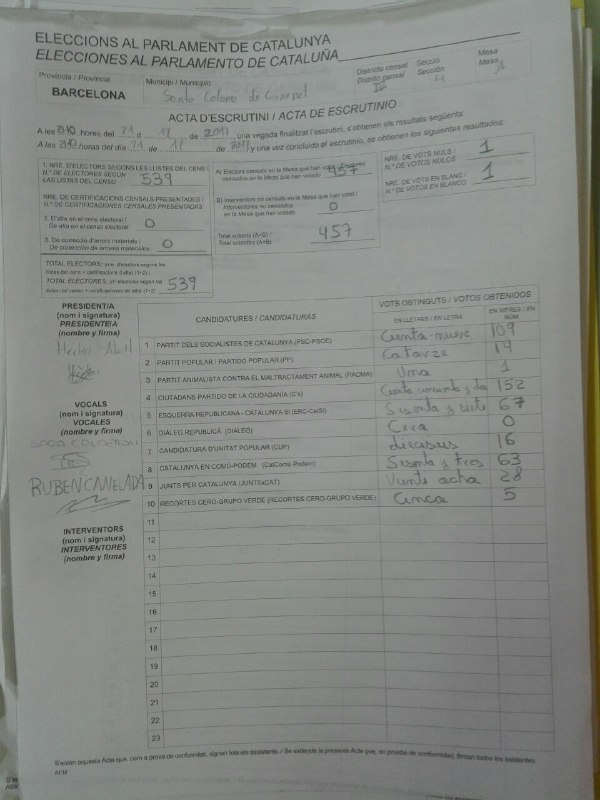 ELECCIONS AL PARLAMENT DE CATALUNYA
ELECCIONES AL PARLAMENTO DE CATALUÑA
Província / Provincia
BARCELONA
Municipi / Municipio
Santa Coloma de Gramenet
Districte censal
Distrito censal
Secció
Sección
4
Mesa
Mesa
ACTA D'ESCRUTINI / ACTA DE ESCRUTINIO
A les hores del 21 d 12 de 2017, una vegada finalitzat l'escrutini, s'obtenen els resultats següents:
A las horas del día 21 de 12 de 2017 y una vez concluido el escrutinio, se obtienen los siguientes resultados:
1. NRE. D'ELECTORS SEGONS LES LLISTES DEL CENS /
N.º DE ELECTORES SEGÚN
LAS LISTAS DEL CENSO
539
NRE. DE CERTIFICACIONS CENSALS PRESENTADES /
N.º DE CERTIFICACIONES CENSALES PRESENTADAS
2. D'alta en el cens electoral /
De alta en el censo electoral:
0
3. De correcció d'errors materials /
De corrección de errores materiales:
0
TOTAL ELECTORS: nre. d'electors segons les
llistes del cens + certificacions d'alta (1+2) /
TOTAL ELECTORES: nº electores según las
listas del censo + certificaciones de alta (1+2)
539
A) Electors censats en la Mesa que han votat / Electores
censados en la Mesa que han votado
457
B) Interventors no censats en la Mesa que han votat /
Interventores no censados
en la Mesa que han votado
0
Total votants (A+B) /
Total votantes (A+B)
457
NRE. DE VOTS NULS /
N.º DE VOTOS NULOS
1
NRE. DE VOTS EN BLANC /
N.º DE VOTOS EN BLANCO
1
PRESIDENT/A
(nom i signatura)
PRESIDENTE/A
(nombre y firma)
VOCALS
(nom i signatura)
VOCALES
(nombre y firma)
RUBEN CANELADA
INTERVENTORS
(nom i signatura)
INTERVENTORES
(nombre y firma)
CANDIDATURES / CANDIDATURAS
VOTS OBTINGUTS / VOTOS OBTENIDOS
EN LLETRES / EN LETRA
EN XIFRES / EN NÚM.
1 PARTIT DELS SOCIALISTES DE CATALUNYA (PSC-PSOE) Ciento nueve 109
2 PARTIT POPULAR / PARTIDO POPULAR (PP) Catorze 14
3 PARTIT ANIMALISTA CONTRA EL MALTRACTAMENT ANIMAL (PACMA) Uno 1
4 CIUTADANS PARTIDO DE LA CIUDADANÍA (C's) Ciento cincuenta y dos 152
5 ESQUERRA REPUBLICANA - CATALUNYA SÍ (ERC-CatSí) Sesenta y siete 67
6 DIÀLEG REPUBLICÀ (DIÀLEG) Cero 0
7 CANDIDATURA D'UNITAT POPULAR (CUP) dieciseis 16
8 CATALUNYA EN COMÚ-PODEM (CatComú-Podem) Sesenta y tres 63
9 JUNTS PER CATALUNYA (JUNTSxCAT) Veinte ocho 28
10 RECORTES CERO-GRUPO VERDE (RECORTES CERO-GRUPO VERDE) Cinco 5
11
12
13
14
15
16
17
18
19
20
21
22
23
S'estén aquesta Acta que, com a prova de conformitat, signen tots els assistents. / Se extiende la presente Acta que, en prueba de conformidad, firman todos los asistentes.